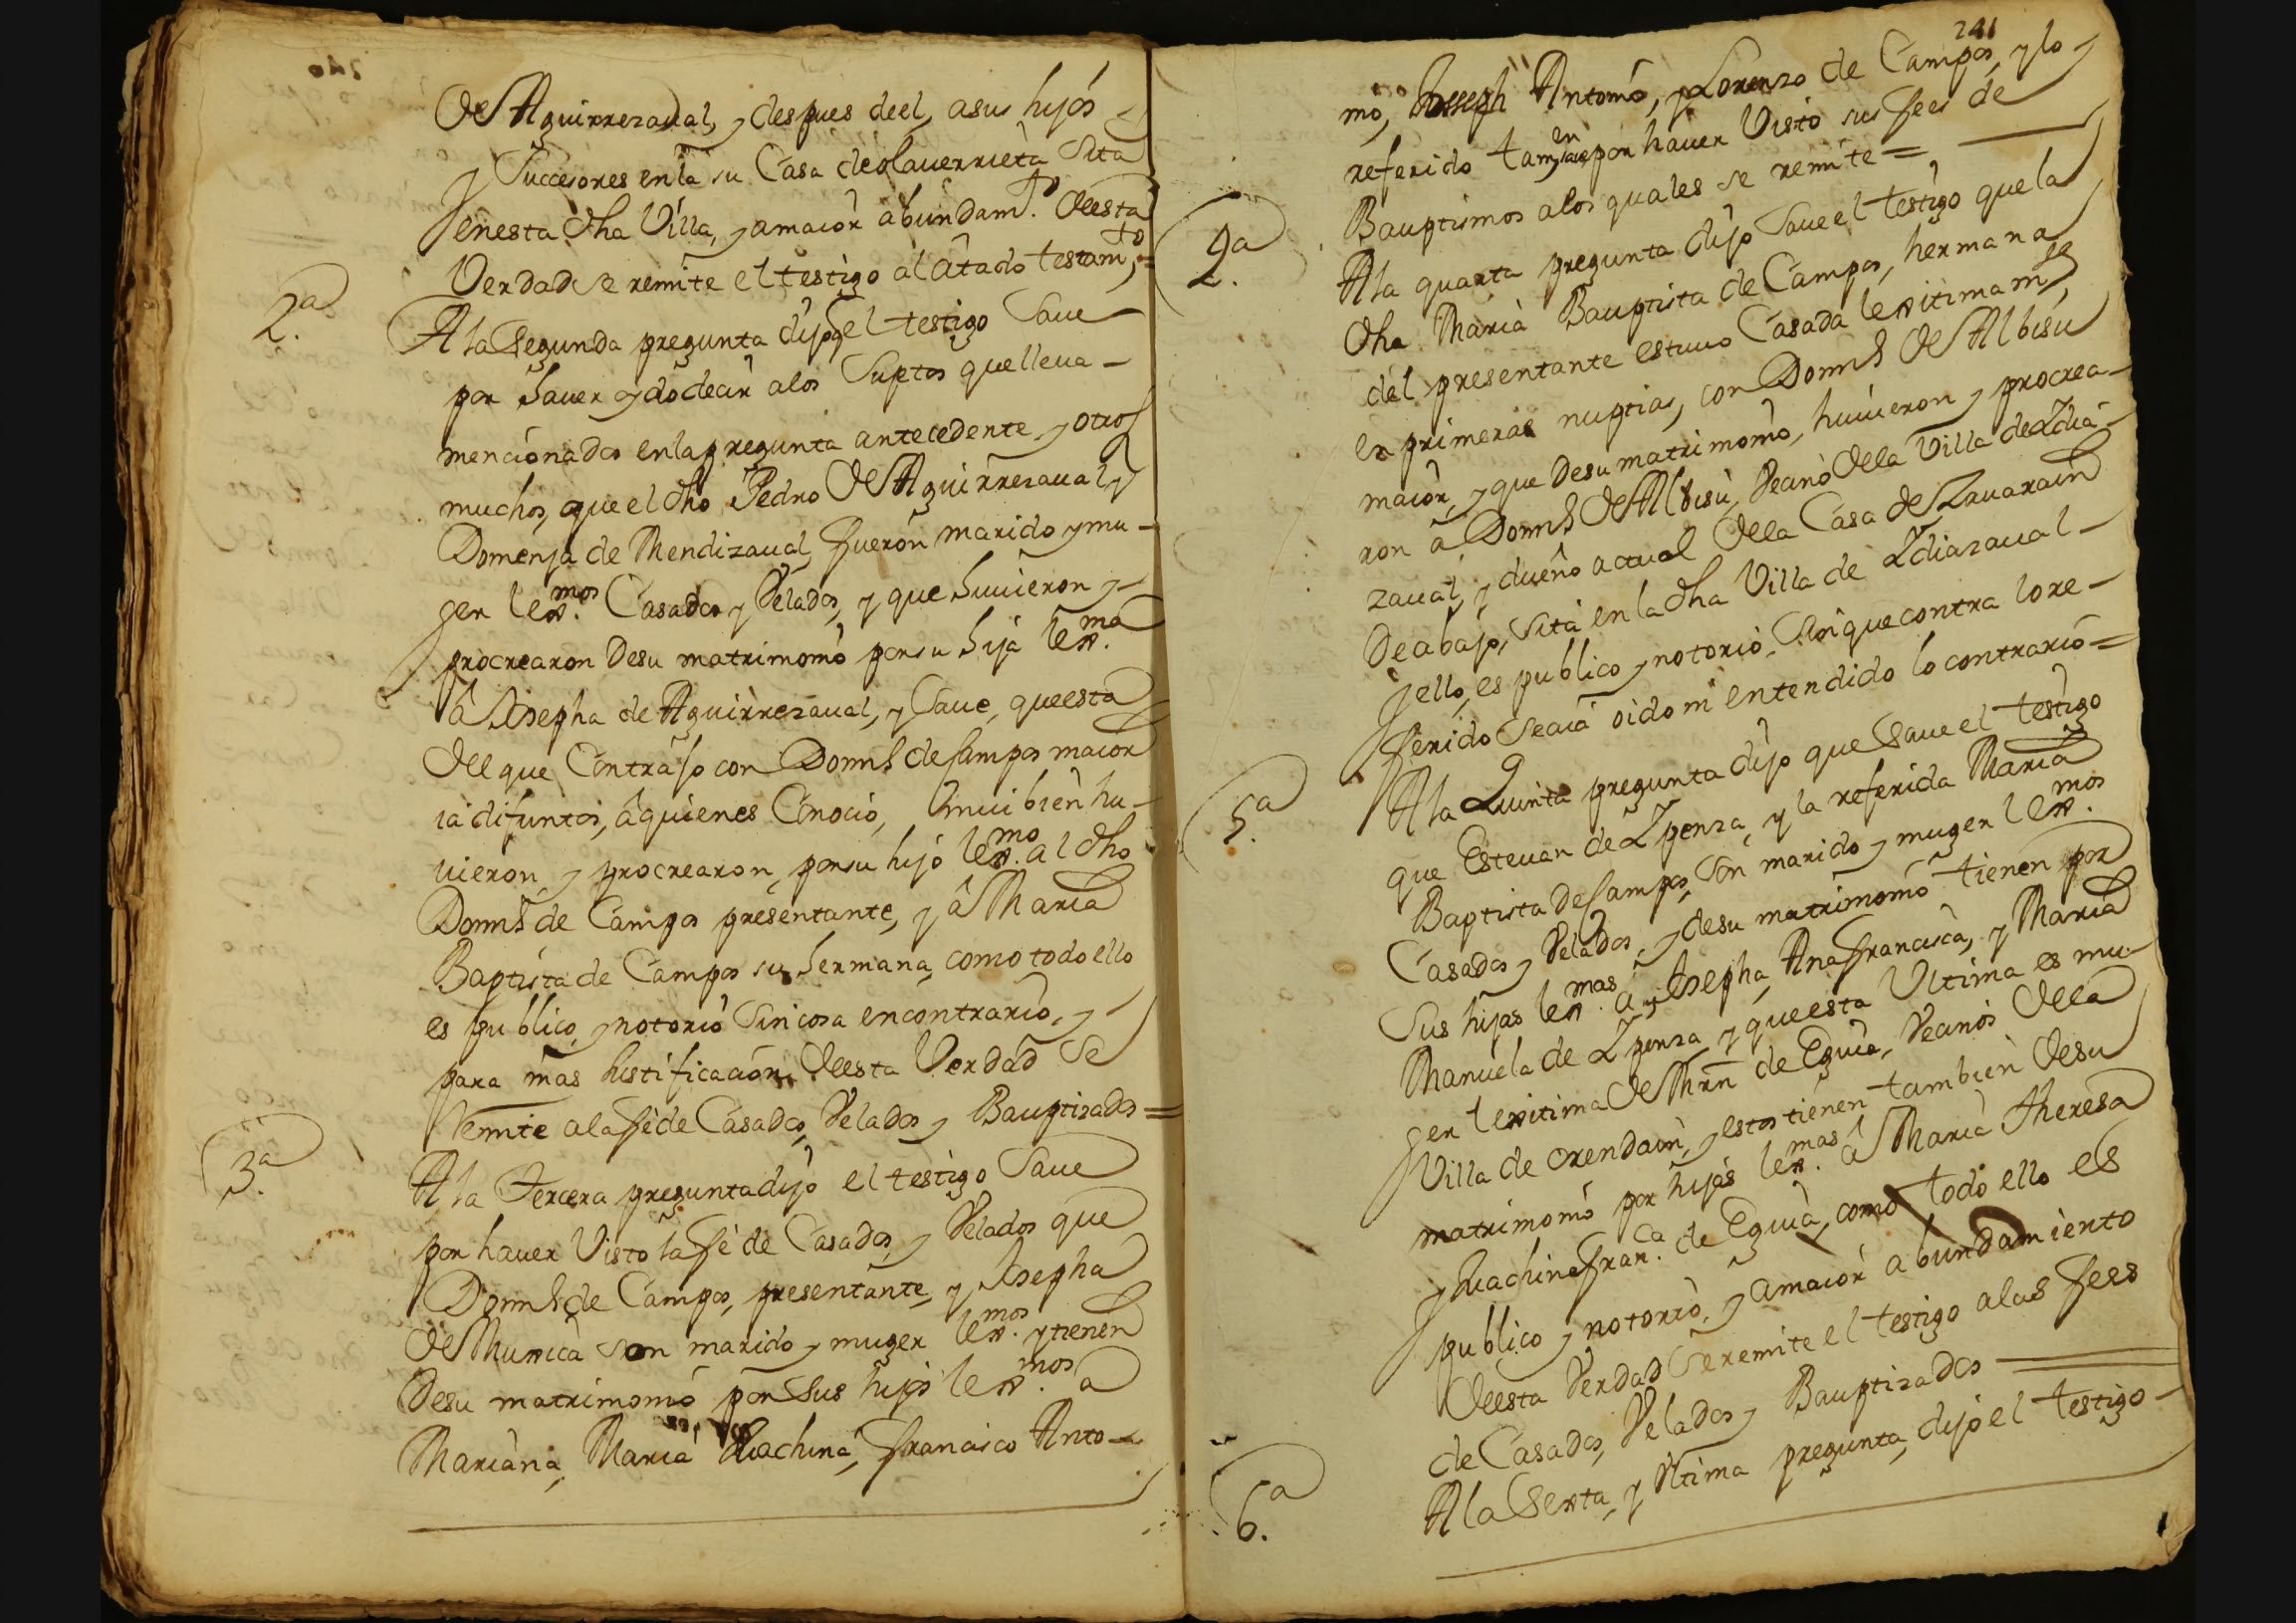 De Aguirrezaual, y despues de el, a sus hijos
y Successores en la su Casa de olauerrieta Sita
en esta dha Villa, y a maior abundamto. De esta
Verdad se remite el testigo al citado testamto,=
2a. A la Segunda pregunta dijo q el testigo Saue
por hauer oydo decir a los Supetos que lleua
mencionados en la pregunta antecedente y otros
muchos, que el dho Pedro De Aguirrezaual, y
Domenja de Mendizaual, fueron marido y mu-
ger lexmos. Casados y Velados, y que huuieron y
procrearon De su matrimonio por su hija lexma.
â Josepha de Aguirrezaual, y Saue, que esta
De el que Contrajo con Domns de Campos maior
ia difuntos, â quienes Conocio, mui bien hu-
uieron, y procrearon, por su hijo lexmo. al dho
Domns de Campos presentante, y â Maria
Baptista de Campos su hermana, como todo ello
es publico, y notorio Sin cosa en contrario, y
para mas Justificacion De esta Verdad Se
Remite a la fè de Casados, Velados y Bauptizados=
3a. A la Tercera pregunta dijo el testigo Saue
por hauer Visto la fè de Casados, y Velados que
Domns de Campos, presentante, y Josepha
De Muxica son marido y muger lexmos. y tienen
De su matrimonio por Sus hijos lexmos. â
Mariana, Maria Juachina, Francisco Anto-
241
nio, Joseph Antonio, y Lorenzo de Campos, y lo
referido tambien Saue por hauer Visto sus fees de
Bauptismos a los quales se remite=
4a. A la quarta pregunta dijo Saue el testigo que la
dha Maria Bauptista de Campos, hermana
del presentante estuuo Casada lexitimamte,
en primeras nuptias, con Domns De Albisu
maior, y que De su matrimonio, huuieron y procrea-
ron â Domns De Albisu, Vecino De la Villa de Ydia-
zaual, y dueño actual De la Casa de Zauarain
De abajo, Sita en la dha Villa de Ydiazaual
y ello, es publico y notorio, Sin que contra lo re-
ferido Se aia oido ni entendido lo contrario=
5a. A la Quinta pregunta dijo que Saue el testigo
que Esteuan de Ypenza, y la referida Maria
Baptista de Campos, Son marido y muger lexmos.
Casados y Velados, y de su matrimonio tienen por
Sus hijas lexmas. â Josepha, Ana Francisca, y Maria
Manuela de Ypenza, y que esta Vltima es mu-
ger lexitima De Mrn de Eguia, Vecinos De la
Villa de orendain, y estos tienen tambien De su
matrimonio por hijas lexmas. â Maria Theresa
y Juachina Franca. de Eguia, como todo ello es
publico y notorio, y a maior abundamiento
De esta Verdad Se remite el testigo a las fees
de Casados, Velados y Bauptizados
6a. A la Sexta, y Vltima pregunta, dijo el testigo